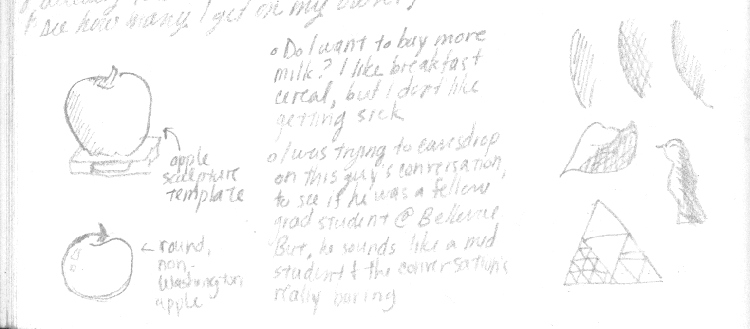 see how many I get on my own
apple
sculpture
template
round,
non-
Washington
apple
• Do I want to buy more
milk? I like breakfast
cereal, but I don't like
getting sick
• I was trying to eavesdrop
on this guy's conversation,
to see if he was a fellow
grad student @ Bellevue
But, he sounds like a med
student & the conversation's
really boring